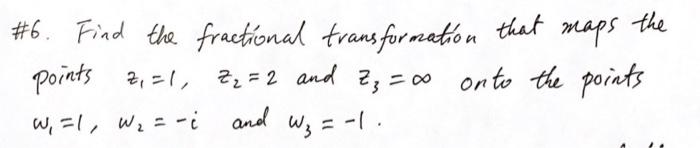 #6. Find the fractional transformation that maps the
points z₁ = 1, z₂ = 2 and z₃ = ∞ onto the points
w₁ = 1, w₂ = -i and w₃ = -1.